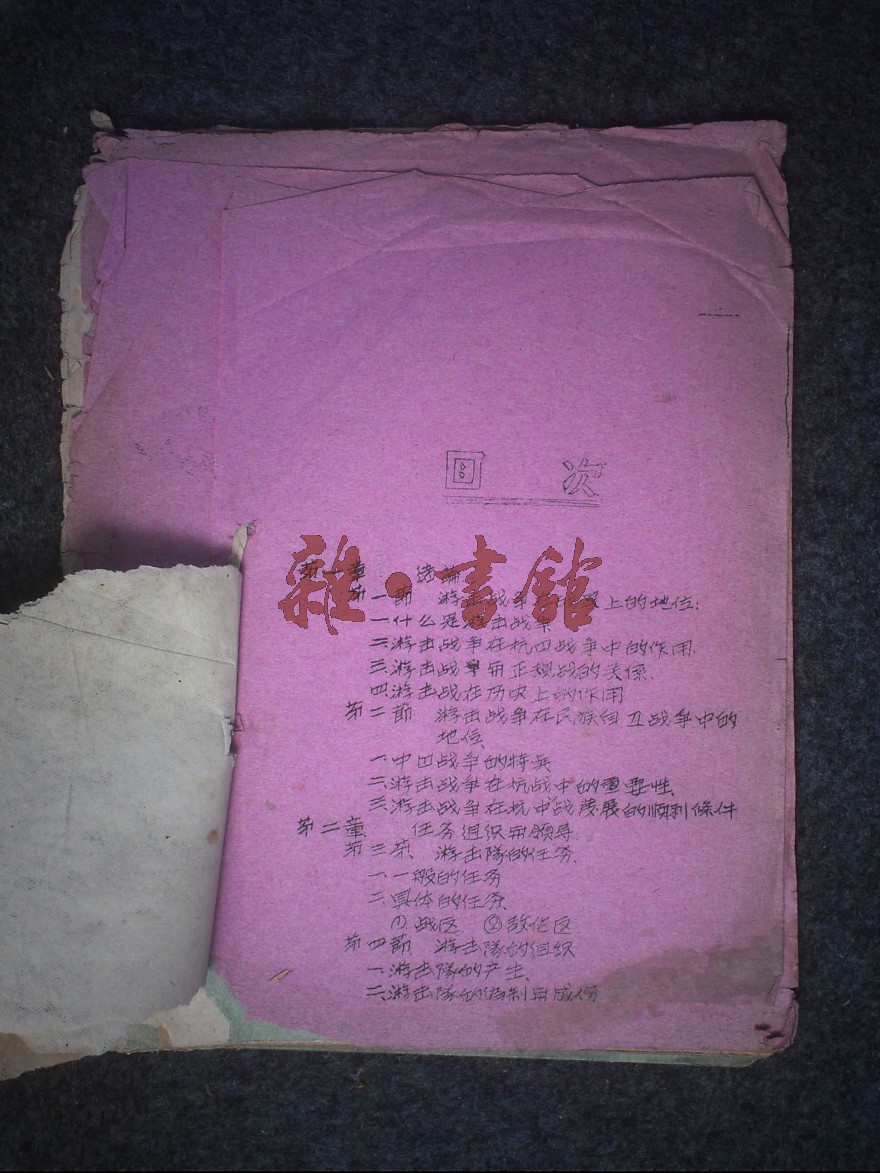 目 次
第一章 绪论
第一節 游击战争在 上的地位:
一.什么是游击战争
二.游击战争在抗日战争中的作用.
三.游击战争与正规战的关係.
四.游击战在历史上的作用
第二節 游击战争在民族自卫战争中的
地位.
一.中日战争的特点
二.游击战争在抗战中的重要性.
三.游击战争在抗中战發展的顺利條件
第二章. 任务组织与领导.
第三节. 游击隊的任务.
一.一般的任务
二.具体的任务.
①.战区 ②敌佔区
第四節 游击隊的组织
一.游击隊的产生.
二.游击隊的编制与成份
雜·書館